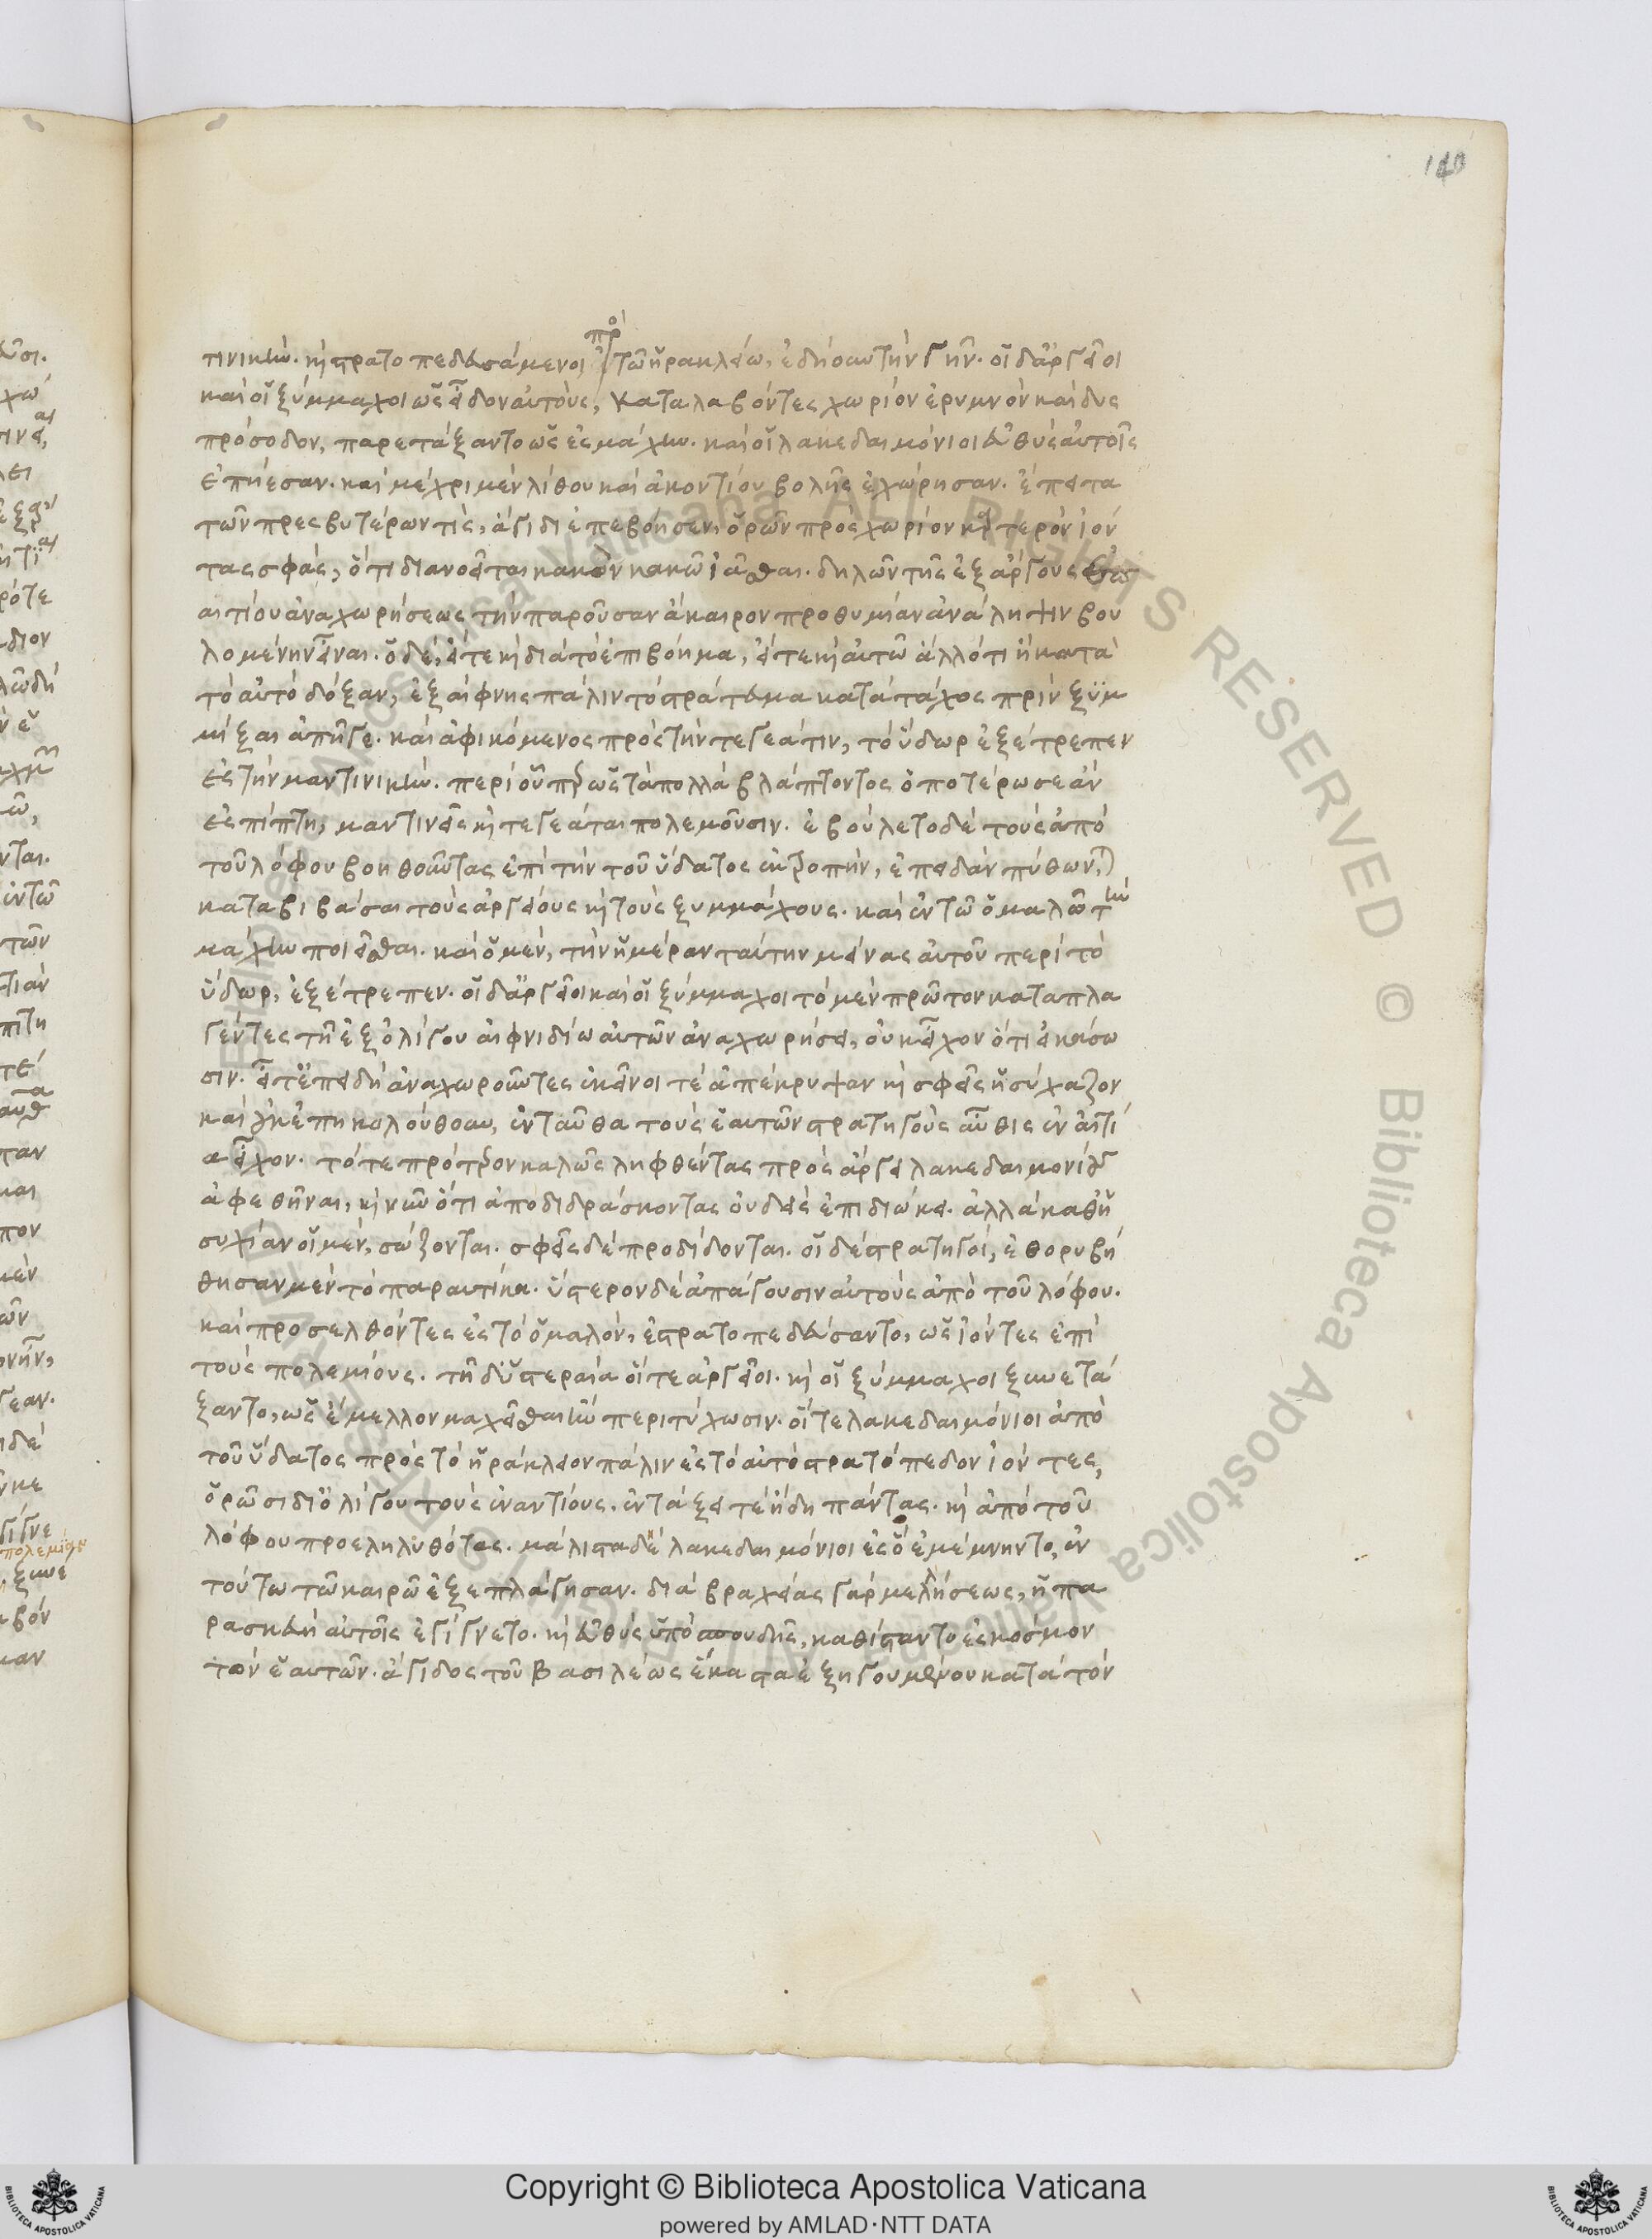 140
πρὸ
τινικὴν. καὶ στρατοπεδευσάμενοι τῶ ἡρακλείω, ἐδήιουν τὴν γῆν. οἱ δ' ἀργεῖοι
καὶ οἱ ξύμμαχοι ὡς εἶδον αὐτοὺς, καταλαβόντες χωρίον ἐρυμνὸν καὶ δυς
πρόσοδον, παρετάξαντο ὡς ἐς μάχην. καὶ οἱ λακεδαιμόνιοι εὐθὺς αὐτοῖς
ἐπήεσαν. καὶ μέχρι μὲν λίθου καὶ ἀκοντίου βολῆς ἐχώρησαν. ἔπειτα
τῶν πρεσβυτέρων τὶς, ἄγιδι ἐπεβόησεν, ὁρῶν πρὸς χωρίον καρτερὸν ἰόν
τας σφὰς, ὅτι διανοεῖται κακὸν κακῶ ἰᾶσθαι. δηλῶν τῆς ἐξ ἄργους ἐπ
αιτίου ἀναχωρήσεως τὴν παροῦσαν ἄκαιρον προθυμίαν ἀνάληψιν βου
λομένην εἶναι. ὁ δὲ, εἴτε καὶ διὰ τὸ ἐπιβόημα, εἴτε καὶ αὐτῶ ἄλλό τι ἢ κατὰ
τὸ αὐτὸ δόξαν, ἐξαίφνης πάλιν τὸ στράτευμα κατὰ τάχος πρὶν ξυμ
μίξαι ἀπῆγε. καὶ ἀφικόμενος πρὸς τὴν τεγεάτιν, τὸ ὕδωρ ἐξέτρεπεν
ἐς τὴν μαντινικήν. περὶ οὗπερ ὡς τὰ πολλὰ βλάπτοντος ὁποτέρωσε ἂν
ἐσπίπτη, μαντινεῖς καὶ τεγεάται πολεμοῦσιν. ἐβούλετο δὲ τοὺς ἀπὸ
τοῦ λόφου βοηθοῦντας ἐπὶ τὴν τοῦ ὕδατος ἐκτροπὴν, ἐπειδὰν πύθωνται
καταβιβάσαι τοὺς ἀργείους καὶ τοὺς ξυμμάχους. καὶ ἐν τῶ ὁμαλῶ τὴν
μάχην ποιεῖσθαι. καὶ ὁ μὲν, τὴν ἡμέραν ταύτην μείνας αὐτοῦ περὶ τὸ
ὕδωρ, ἐξέτρεπεν. οἱ δ' ἀργεῖοι καὶ οἱ ξύμμαχοι τὸ μὲν πρῶτον καταπλα
γέντες τῆ ἐξ ὀλίγου αἰφνιδίω αὐτῶν ἀναχωρήσει, οὐκ εἶχον ὅτι εἰκάσω
σιν. εἶτ' ἐπειδὴ ἀναχωροῦντες ἐκεῖνοι τὲ ἀπέκρυψαν καὶ σφεῖς ἡσύχαζον
καὶ οὐκ ἐπηκολούθουν, ἐνταῦθα τοὺς ἑαυτῶν στρατηγοὺς αὖθις ἐν αἰτί
α εἶχον. τό τε πρότερον καλῶς ληφθέντας πρὸς ἄργει λακεδαιμονίους
ἀφεθῆναι, καὶ νῦν ὅτι ἀποδιδράσκοντας οὐδεὶς ἐπιδιώκει. ἀλλὰ καθ' ἡ
συχίαν οἱ μὲν, σώζονται. σφεῖς δὲ προδίδονται. οἱ δὲ στρατηγοὶ, ἐθορυβή
θησαν μὲν τὸ παραυτίκα. ὕστερον δὲ ἀπάγουσιν αὐτοὺς ἀπὸ τοῦ λόφου.
καὶ προσελθόντες ἐς τὸ ὁμαλὸν, ἐστρατοπεδεύσαντο, ὡς ἰόντες ἐπὶ
τοὺς πολεμίους. τῆ δ' ὑστεραία οἵ τε ἀργεῖοι. καὶ οἱ ξύμμαχοι ξυνετά
ξαντο, ὡς ἔμελλον μαχεῖσθαι ἢν περιτύχωσιν. οἵ τε λακεδαιμόνιοι ἀπὸ
τοῦ ὕδατος πρὸς τὸ ἡράκλειον πάλιν ἐς τὸ αὐτὸ στρατόπεδον ἰόντες,
ὁρῶσι δι' ὀλίγου τοὺς ἐναντίους. ἐν τάξει τὲ ἤδη πάντας. καὶ ἀπὸ τοῦ
λόφου προεληλυθότας. μάλιστα δὲ λακεδαιμόνιοι ἐς ὃ ἐμέμνηντο, ἐν
τούτω τῶ καιρῶ ἐξεπλάγησαν. διὰ βραχείας γὰρ μελλήσεως, ἡ πα
ρασκευὴ αὐτοῖς ἐγίγνετο. καὶ εὐθὺς ὑπὸ σπουδῆς, καθίσταντο ἐς κόσμον
τὸν ἑαυτῶν. ἄγιδος τοῦ βασιλέως ἕκαστα ἐξηγουμένου κατὰ τὸν
Copyright © Biblioteca Apostolica Vaticana
powered by AMLAD·NTT DATA